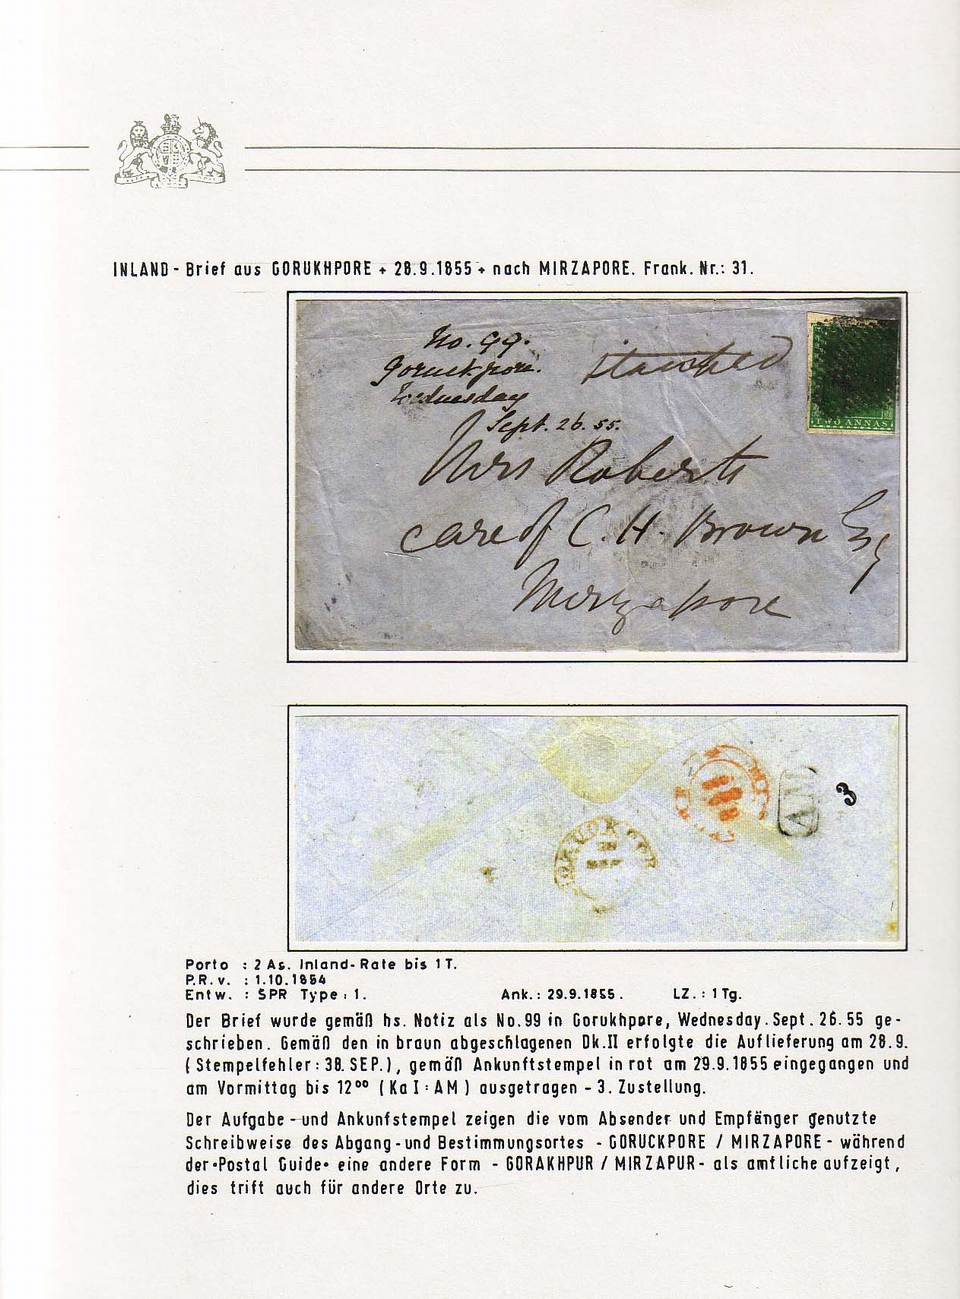 INLAND - Brief aus GORUKHPORE + 28.9.1855 + nach MIRZAPORE. Frank. Nr.: 31.
No. 99.
Goruckpore.
Wednesday
Sept. 26. 55.
Stamped
TWO ANNAS
Mrs Roberts
care of C. H. Brown Esq
Mirzapore
AM
3
Porto : 2 As. Inland-Rate bis 1 T.
P.R.v. : 1.10.1854
Entw. : SPR Type : 1. Ank.: 29.9.1855. LZ.: 1 Tg.
Der Brief wurde gemäß hs. Notiz als No.99 in Gorukhpore, Wednesday. Sept. 26. 55 ge-
schrieben. Gemäß den in braun abgeschlagenen Dk.II erfolgte die Auflieferung am 28.9.
(Stempelfehler: 38. SEP.), gemäß Ankunftstempel in rot am 29.9.1855 eingegangen und
am Vormittag bis 12⁰⁰ (Ka I : AM) ausgetragen - 3. Zustellung.
Der Aufgabe - und Ankunfstempel zeigen die vom Absender und Empfänger genutzte
Schreibweise des Abgang - und Bestimmungsortes - GORUCKPORE / MIRZAPORE - während
der •Postal Guide• eine andere Form - GORAKHPUR / MIRZAPUR - als amtliche aufzeigt,
dies trift auch für andere Orte zu.